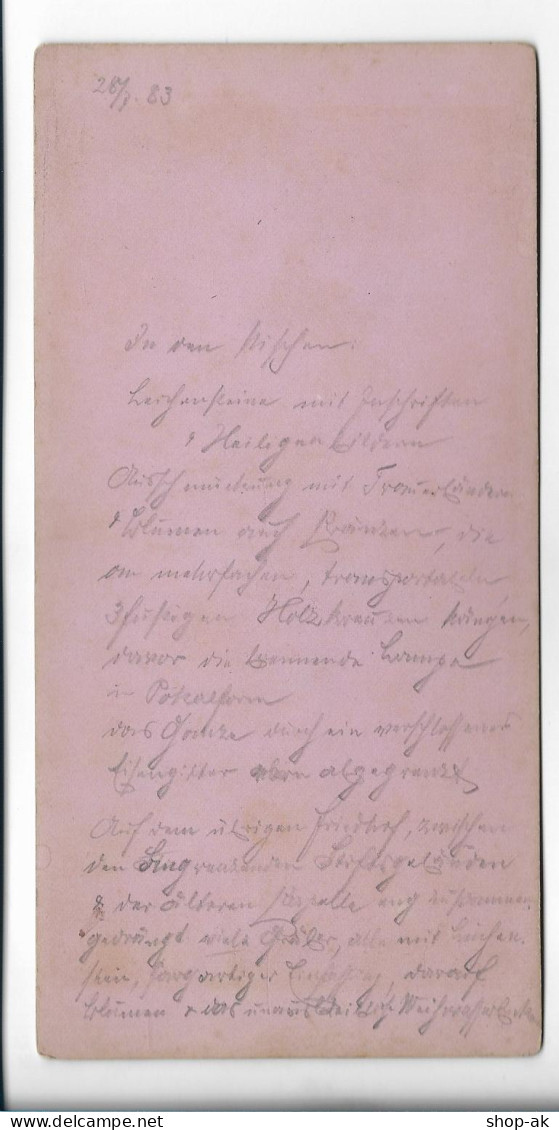 28/8. 83
In den Nischen:
Leichensteine mit Inschriften
& Heiligenbildern
Ausschmückung mit Trauerbändern
& Blumen auch Kränzen, die
an mehrfachen, transportabeln
3fußigen Holzkreuzen hängen,
davor die brennende Lampe
in Pokalform
das Ganze durch ein verschlossenes
Eisengitter vorn abgegrenzt
Auf dem übrigen Friedhof, zwischen
den Stiftsgebäuden
& der älteren Kapelle eng zusammen
gedrängt viele Gräber, alle mit Leichen
stein, sargartiger Einfassung, darauf
Blumen & das unausbleibliche Weihwasserbecken
shop-ak